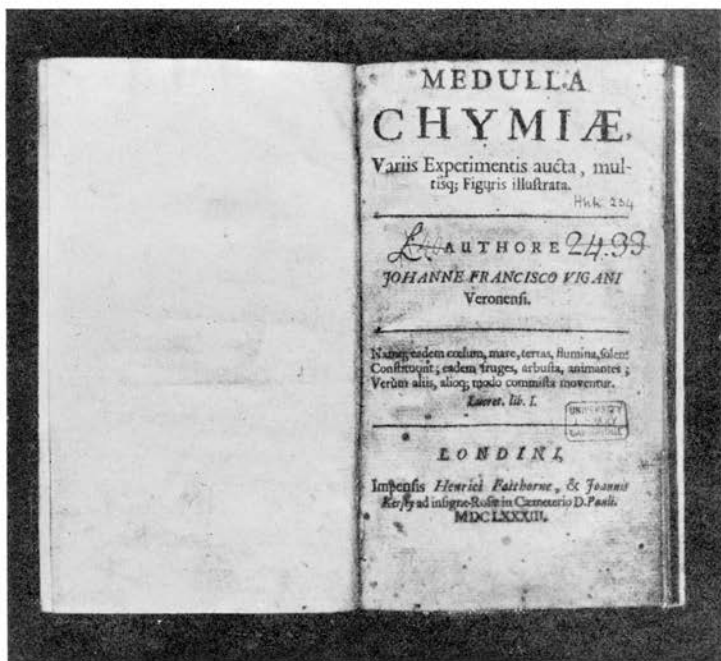 MEDULLA
CHYMIÆ,
Variis Experimentis aucta, mul-
tisq; Figuris illuſtrata.
Hhh. 234
AUTHORE 24.93
JOHANNE FRANCISCO VIGANI
Veronenſi.
Namq; eadem cœlum, mare, terras, flumina, ſolem
Conſtituunt; eadem fruges, arbuſta, animantes;
Verùm aliis, alioq; modo commiſta moventur.
Lucret. lib. I.
UNIVERSITY
LIBRARY
CAMBRIDGE
LONDINI,
Impenſis Henrici Faithorne, & Joannis
Kerſey ad inſigne Roſæ in Cœmeterio D. Pauli.
MDCLXXXIII.